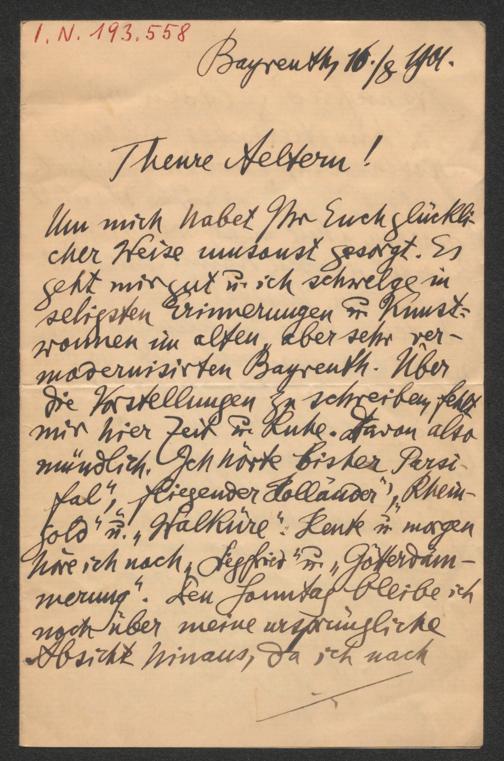 I. N. 193.558
Bayreuth, 16./8 1901.
Theure Aeltern!
Um mich habet Ihr Euch glückli-
cher Weise umsonst gesorgt. Es
geht mir gut u. ich schwelge in
seligsten Erinnerungen u. Kunst-
wonnen im alten, aber sehr ver-
modernisirten Bayreuth. Über
die Vorstellungen zu schreiben, fehlt
mir hier Zeit u. Ruhe. Davon also
mündlich. Ich hörte bisher „Parsi-
fal“, „fliegender Holländer“, „Rhein-
gold“ u. „Walküre“. Heute u. morgen
höre ich noch „Siegfried“ u. „Götterdäm-
merung“. Den Sonntag bleibe ich
noch über meine ursprüngliche
Absicht hinaus, da ich nach